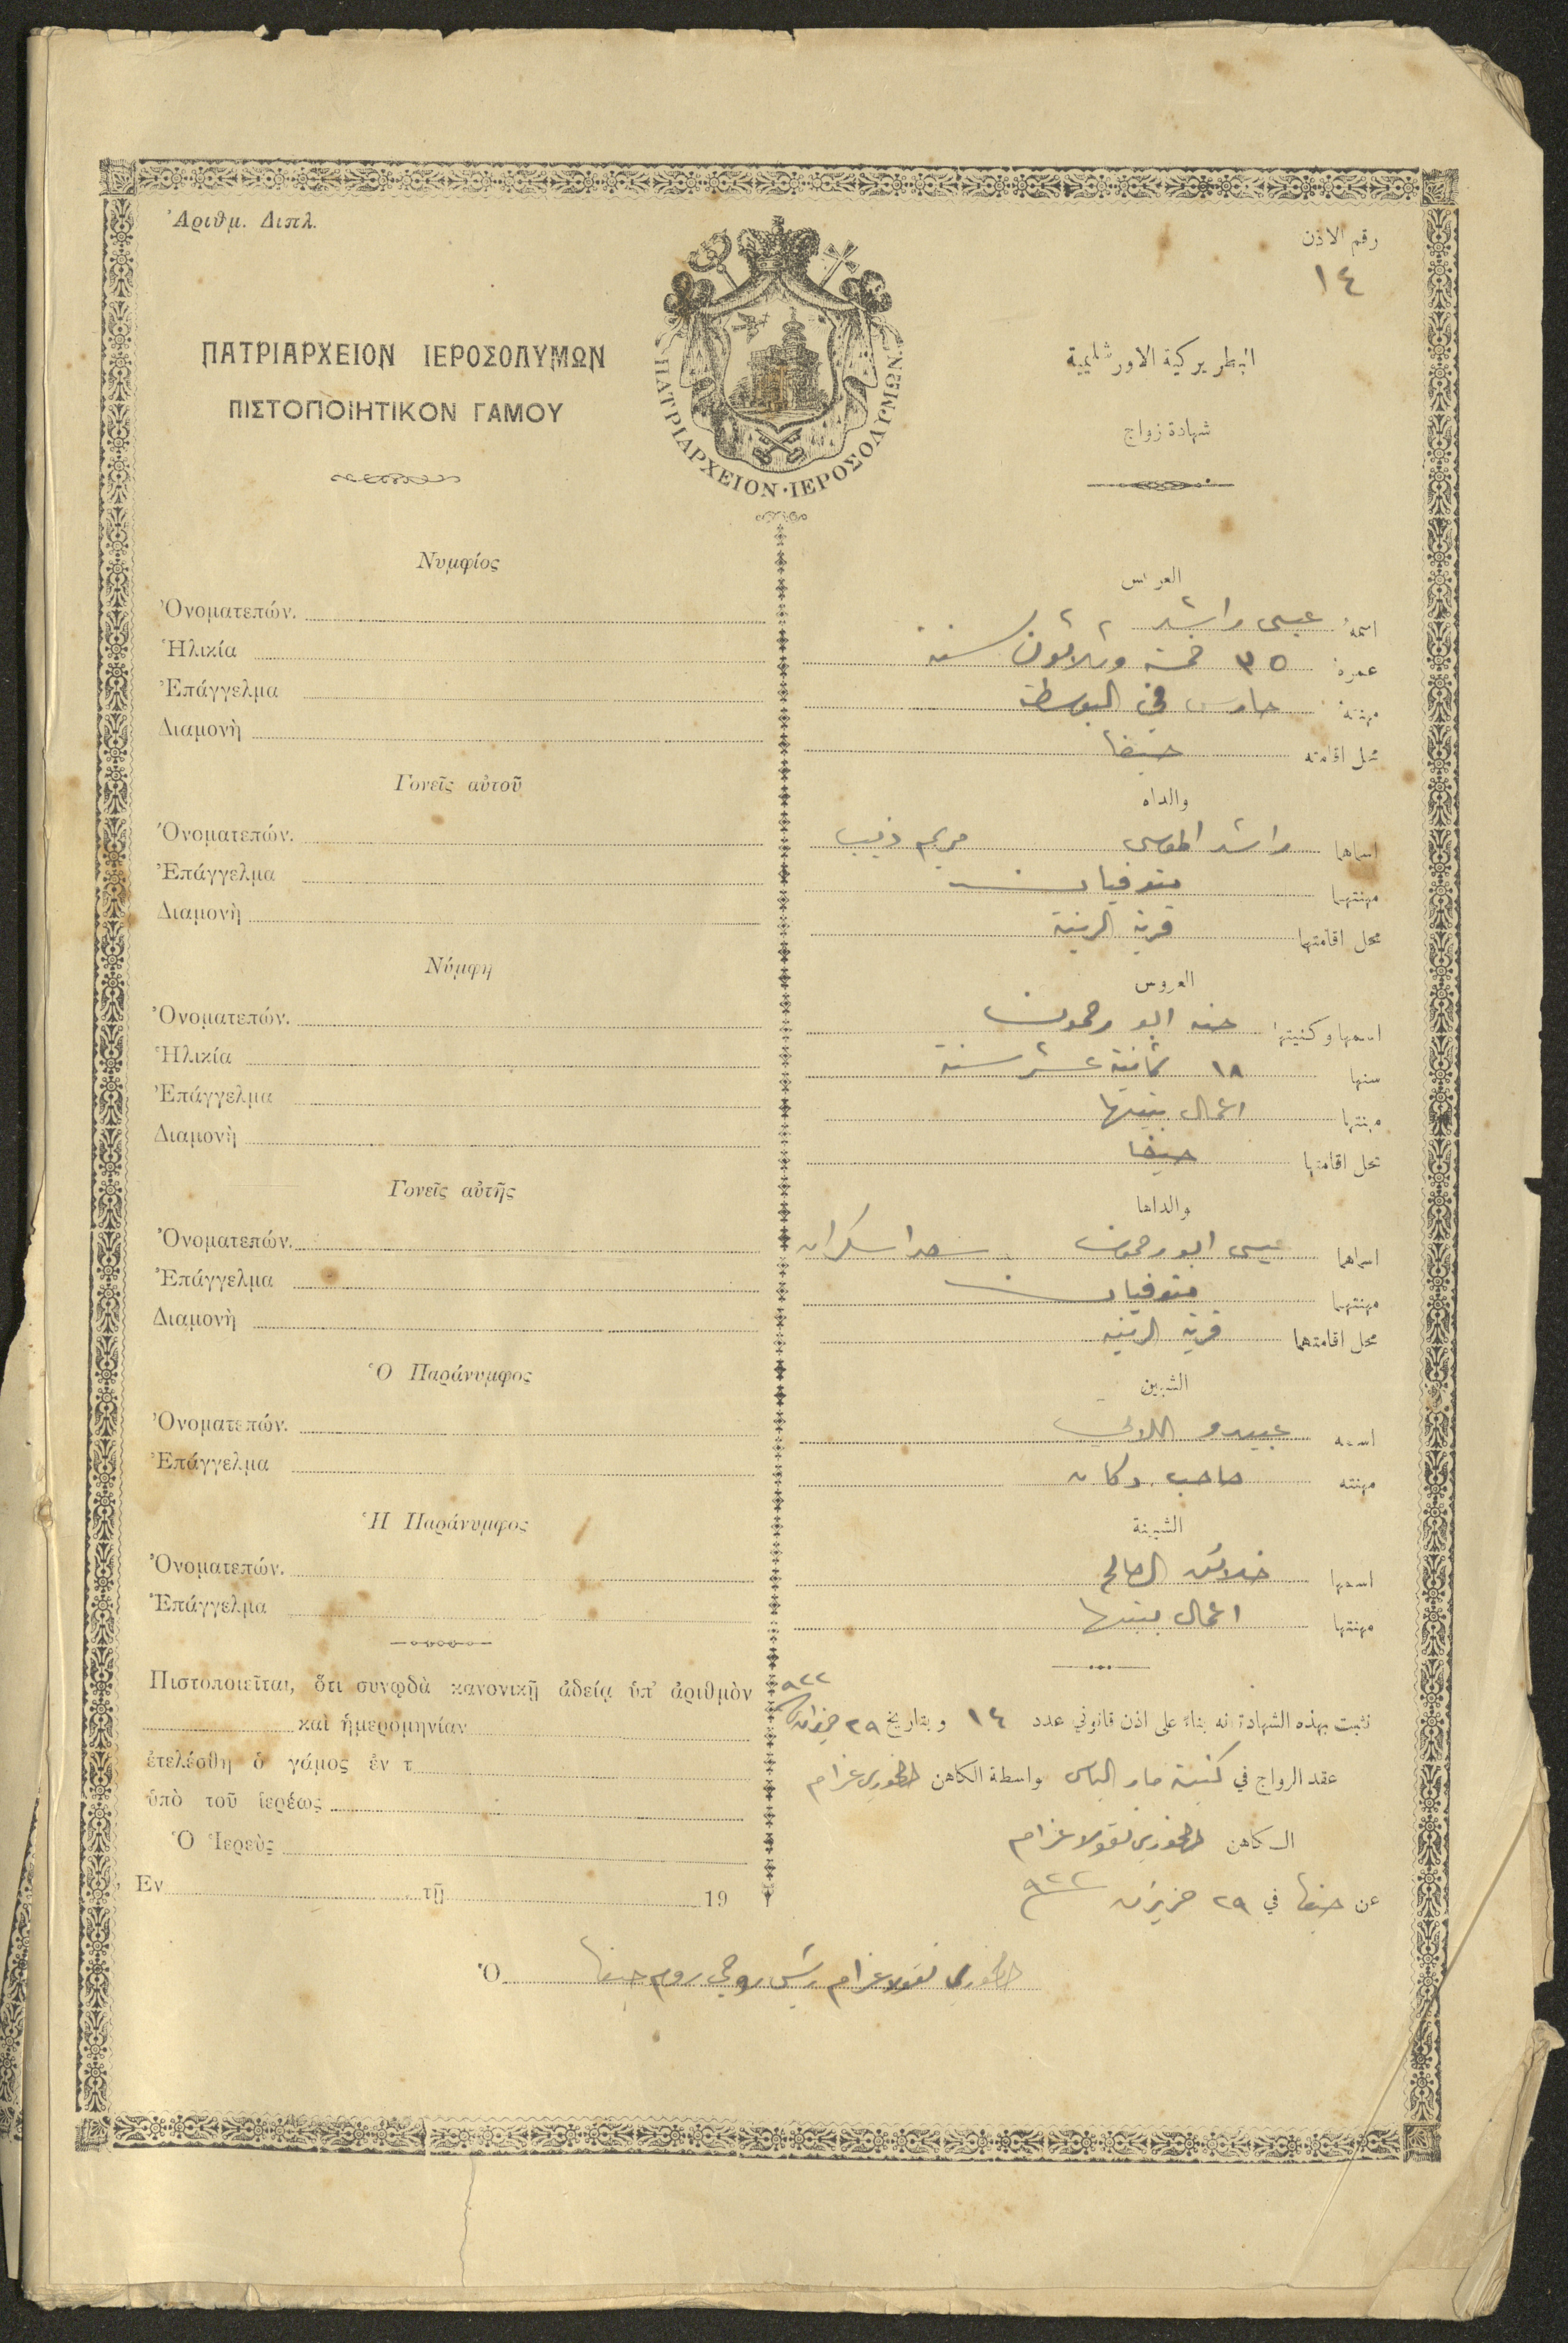 Ἀριθμ. Διπλ.
رقم الاذن
١٤
ΠΑΤΡΙΑΡΧΕΙΟΝ ΙΕΡΟΣΟΛΥΜΩΝ
ΠΙΣΤΟΠΟΙΗΤΙΚΟΝ ΓΑΜΟΥ
ΠΑΤΡΙΑΡΧΕΙΟΝ · ΙΕΡΟΣΟΛΥΜΩΝ
البطريركية الاورشليمية
شهادة زواج
Νυμφίος
Ὀνοματεπών.
Ἡλικία
Ἐπάγγελμα
Διαμονὴ
Γονεῖς αὐτοῦ
Ὀνοματεπών.
Ἐπάγγελμα
Διαμονὴ
Νύμφη
Ὀνοματεπών.
Ἡλικία
Ἐπάγγελμα
Διαμονὴ
Γονεῖς αὐτῆς
Ὀνοματεπών.
Ἐπάγγελμα
Διαμονὴ
Ὁ Παράνυμφος
Ὀνοματεπών.
Ἐπάγγελμα
Ἡ Παράνυμφος
Ὀνοματεπών.
Ἐπάγγελμα
Πιστοποιεῖται, ὅτι συνῳδὰ κανονικῇ ἀδείᾳ ὑπ' ἀριθμὸν
καὶ ἡμερομηνίαν
ἐτελέσθη ὁ γάμος ἐν τ
ὑπὸ τοῦ ἱερέως
Ὁ Ἱερεὺς
Ἐν τῇ 19
العريس
اسمهُ عيسى راشد
عمرهُ ٣٥ خمسة وثلاثون سنة
مهنتهُ حارس في البوسطة
محل اقامته حيفا
والداه
اسماهما راشد الموسى مريم ذيب
مهنتهما متوفيان
محل اقامتهما قرية الرينة
العروس
اسمها وكنيتها حنه ابو رحمون
سنها ١٨ ثمانية عشر سنة
مهنتها اعمال بيتها
محل اقامتها حيفا
والداها
اسماهما عيسى ابو رحمون سعدا سكران
مهنتهما متوفيان
محل اقامتهما قرية الرينه
الشبين
اسمه عبيدو
مهنته صاحب دكان
الشبينة
اسمها الصالح
مهنتها اعمال بيتها
نثبت بهذه الشهادة انه بناءً على اذن قانوني عدد ١٤ وبتاريخ ٢٩ حزيران ٩٢٢
عقد الزواج في كنيسة مار الياس واسطة الكاهن الخوري عزام
الكاهن الخوري نقولا عزام
عن حيفا في ٢٩ حزيران ٩٢٢
Ὁ الخوري نقولا عزام رئيس روحي روم حيفا